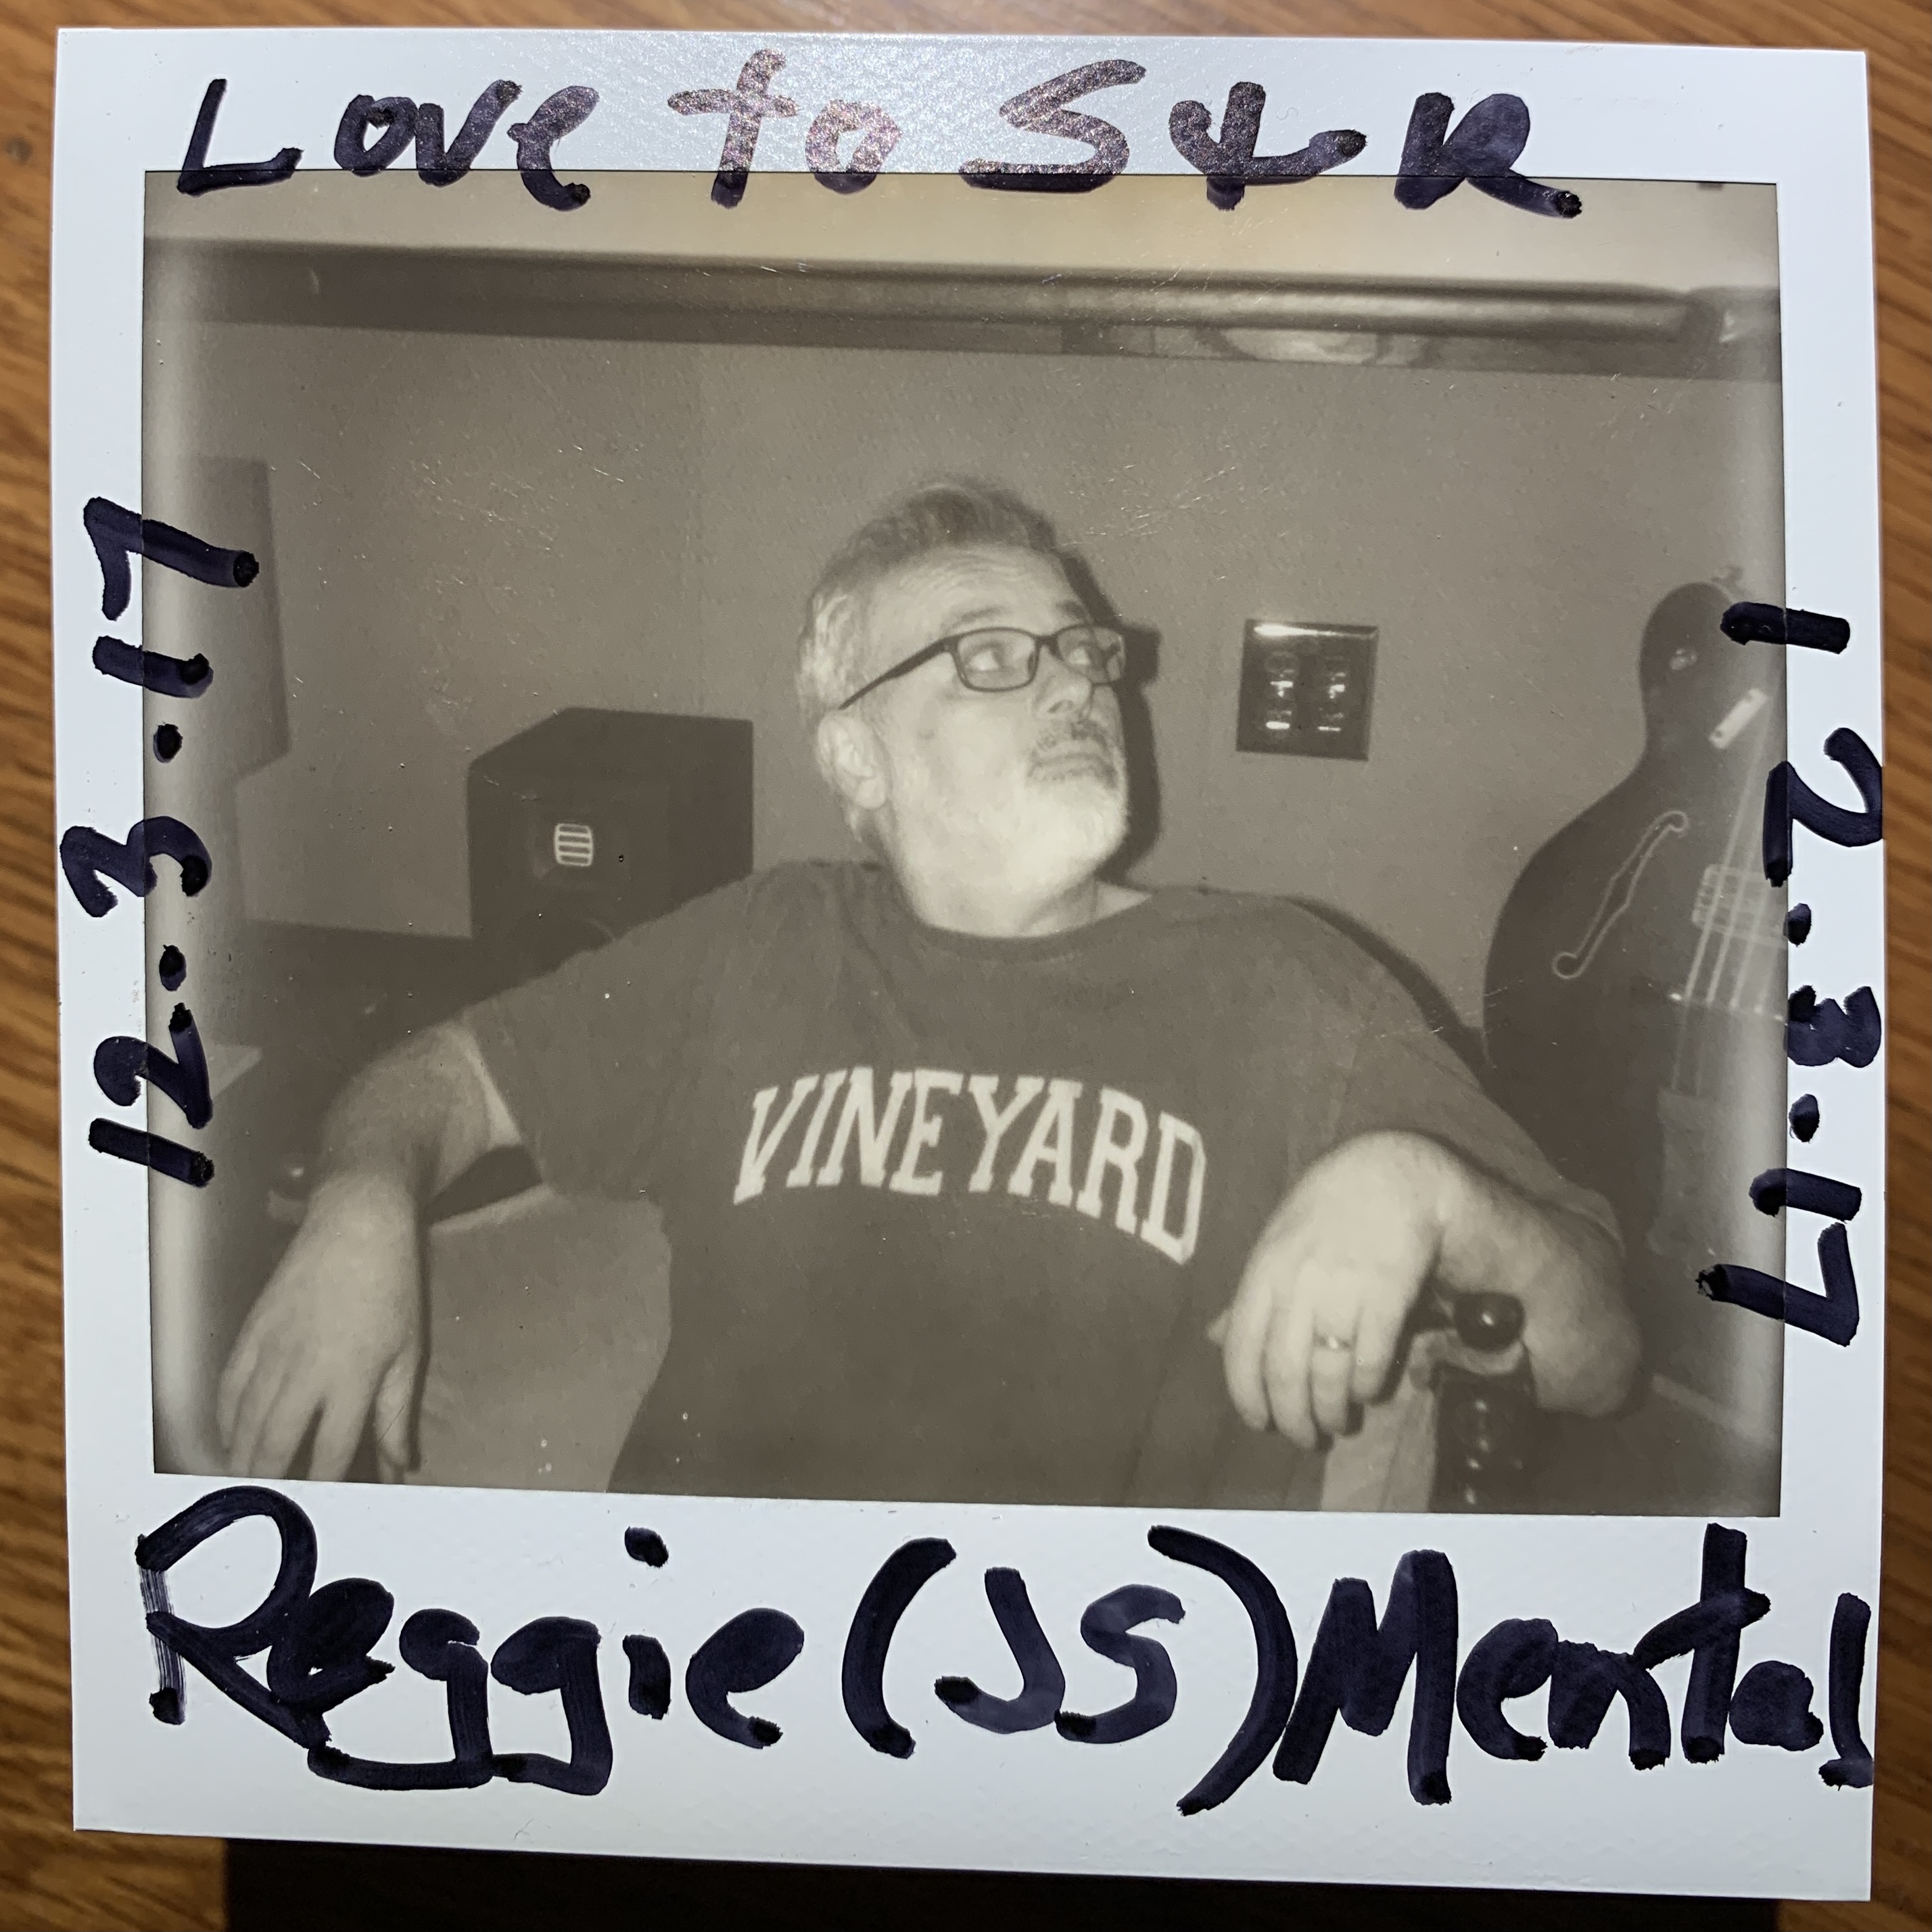 Love to S & R
12.3.17
VINEYARD
12.3.17
Reggie (JS) Mental